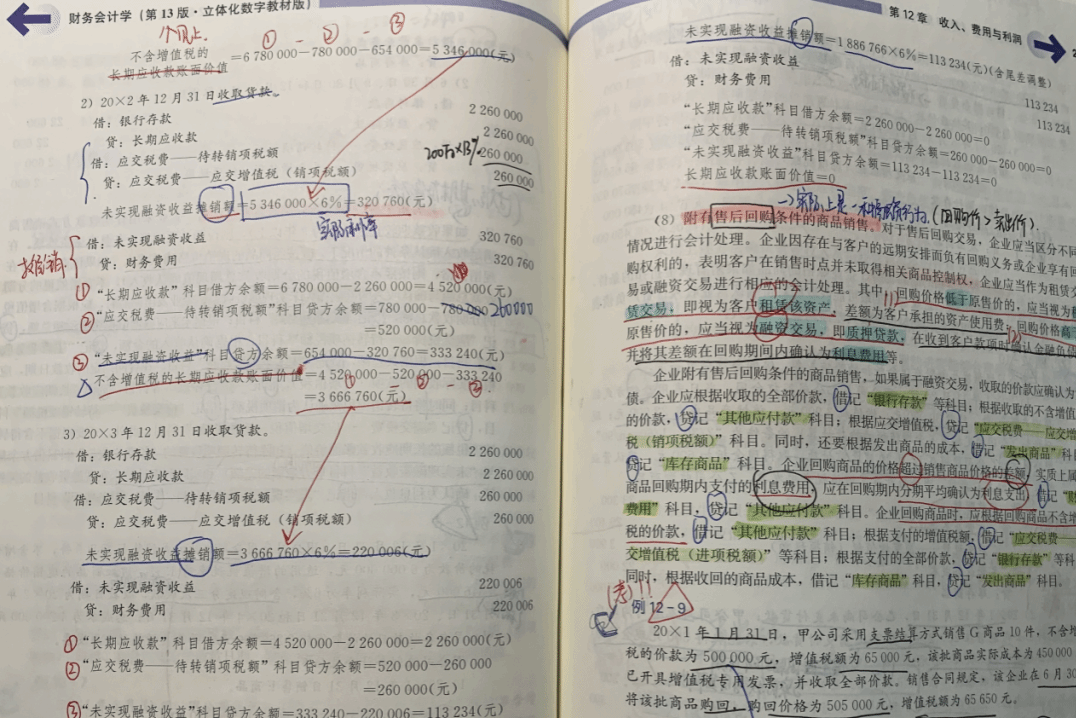 财务会计学（第13版·立体化数字教材版）
个见上
① ② ③
不含增值税的
长期应收款账面价值=6 780 000－780 000－654 000=5 346 000(元)
2）20×2年12月31日收取货款。
借：银行存款 2 260 000
贷：长期应收款 2 260 000
200万×13%
借：应交税费——待转销项税额 260 000
贷：应交税费——应交增值税（销项税额） 260 000
未实现融资收益摊销额=5 346 000×6%=320 760(元)
实际利率
借：未实现融资收益 320 760
贷：财务费用 320 760
①“长期应收款”科目借方余额=6 780 000－2 260 000=4 520 000(元)
②“应交税费——待转销项税额”科目贷方余额=780 000－780 000 260000
=520 000(元)
③“未实现融资收益”科目贷方余额=654 000－320 760=333 240(元)
不含增值税的长期应收款账面价值=4 520 000－520 000－333 240
=3 666 760(元)
① ② ③
3）20×3年12月31日收取货款。
借：银行存款 2 260 000
贷：长期应收款 2 260 000
借：应交税费——待转销项税额 260 000
贷：应交税费——应交增值税（销项税额） 260 000
未实现融资收益摊销额=3 666 760×6%=220 006(元)
借：未实现融资收益 220 006
贷：财务费用 220 006
①“长期应收款”科目借方余额=4 520 000－2 260 000=2 260 000(元)
②“应交税费——待转销项税额”科目贷方余额=520 000－260 000
=260 000(元)
③“未实现融资收益”科目贷方余额=333 240－220 006=113 234(元)
第12章 收入、费用与利润
未实现融资收益摊销额=1 886 766×6%=113 234(元)(含尾差调整)
借：未实现融资收益 113 234
贷：财务费用 113 234
“长期应收款”科目借方余额=2 260 000－2 260 000=0
“应交税费——待转销项税额”科目贷方余额=260 000－260 000=0
“未实现融资收益”科目贷方余额=113 234－113 234=0
长期应收款账面价值=0
→实际上是一种融资行为.(回购价>卖出价).
（8）附有售后回购条件的商品销售。对于售后回购交易，企业应当区分不同
情况进行会计处理。企业因存在与客户的远期安排而负有回购义务或企业享有回
购权利的，表明客户在销售时点并未取得相关商品控制权，企业应当作为租赁交
易或融资交易进行相应的会计处理。其中，回购价格低于原售价的，应当视为租
赁交易，即视为客户租赁该资产，差额为客户承担的资产使用费；回购价格高于
原售价的，应当视为融资交易，即质押贷款，在收到客户款项时确认金融负债
并将其差额在回购期间内确认为利息费用等。
企业附有售后回购条件的商品销售，如果属于融资交易，收取的价款应确认为
债。企业应根据收取的全部价款，借记“银行存款”等科目；根据收取的不含增值
的价款，贷记“其他应付款”科目；根据应交增值税，贷记“应交税费——应交增
税（销项税额）”科目。同时，还要根据发出商品的成本，借记“发出商品”科目
贷记“库存商品”科目。企业回购商品的价格超过销售商品价格的差额，实质上属
商品回购期内支付的利息费用，应在回购期内分期平均确认为利息支出，借记“财
费用”科目，贷记“其他应付款”科目。企业回购商品时，应根据回购商品不含增
税的价款，借记“其他应付款”科目；根据支付的增值税额，借记“应交税费——
交增值税（进项税额）”等科目；根据支付的全部价款，贷记“银行存款”等科目
同时，根据收回的商品成本，借记“库存商品”科目，贷记“发出商品”科目。
例12－9
20×1年1月31日，甲公司采用支票结算方式销售G商品10件，不含增
税的价款为500 000元，增值税额为65 000元，该批商品实际成本为450 000
已开具增值税专用发票，并收取全部价款。销售合同规定，该企业在6月30
将该批商品购回，购回价格为505 000元，增值税额为65 650元。